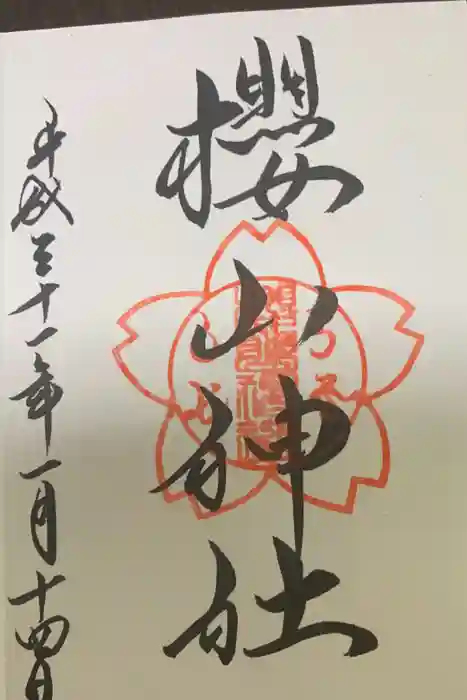 櫻山神社
平成三十一年一月十四日